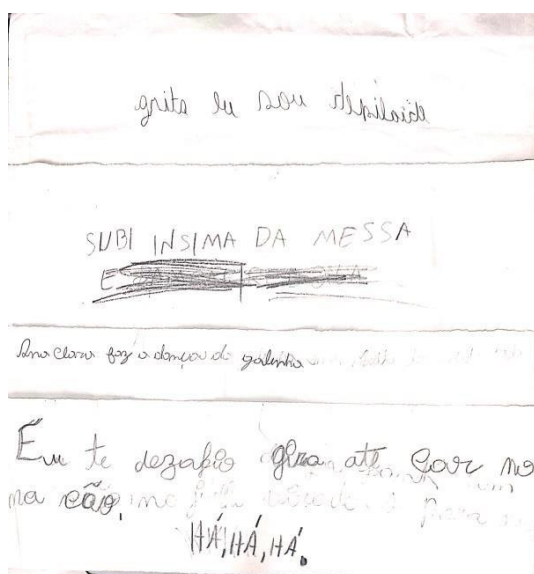 grita eu sou
SUBI INSIMA DA MESSA
E
Ana Clara faz a dança da galinha
Eu te dezafio gira até car no
na cão,
HÁ, HÁ, HÁ.